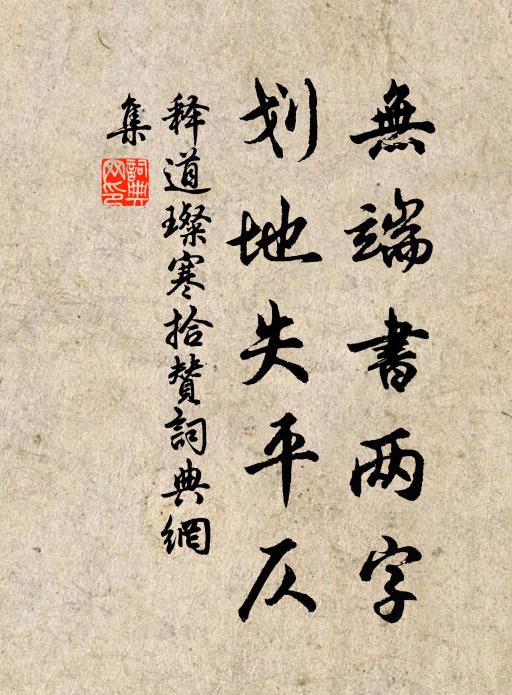 無端書两字
划地失平仄
释道璨寒拾贊詞典網
集
詞典网印